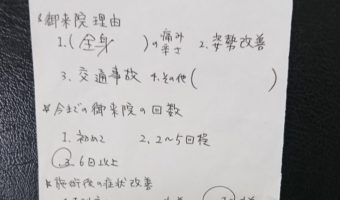 *御来院理由
1.(全身)の痛み 辛さ 2.姿勢改善
3.交通事故 4.その他( )
*今までの御来院の回数
1.初めて 2.2~5回程
3.6回以上
*施術後の症状改善